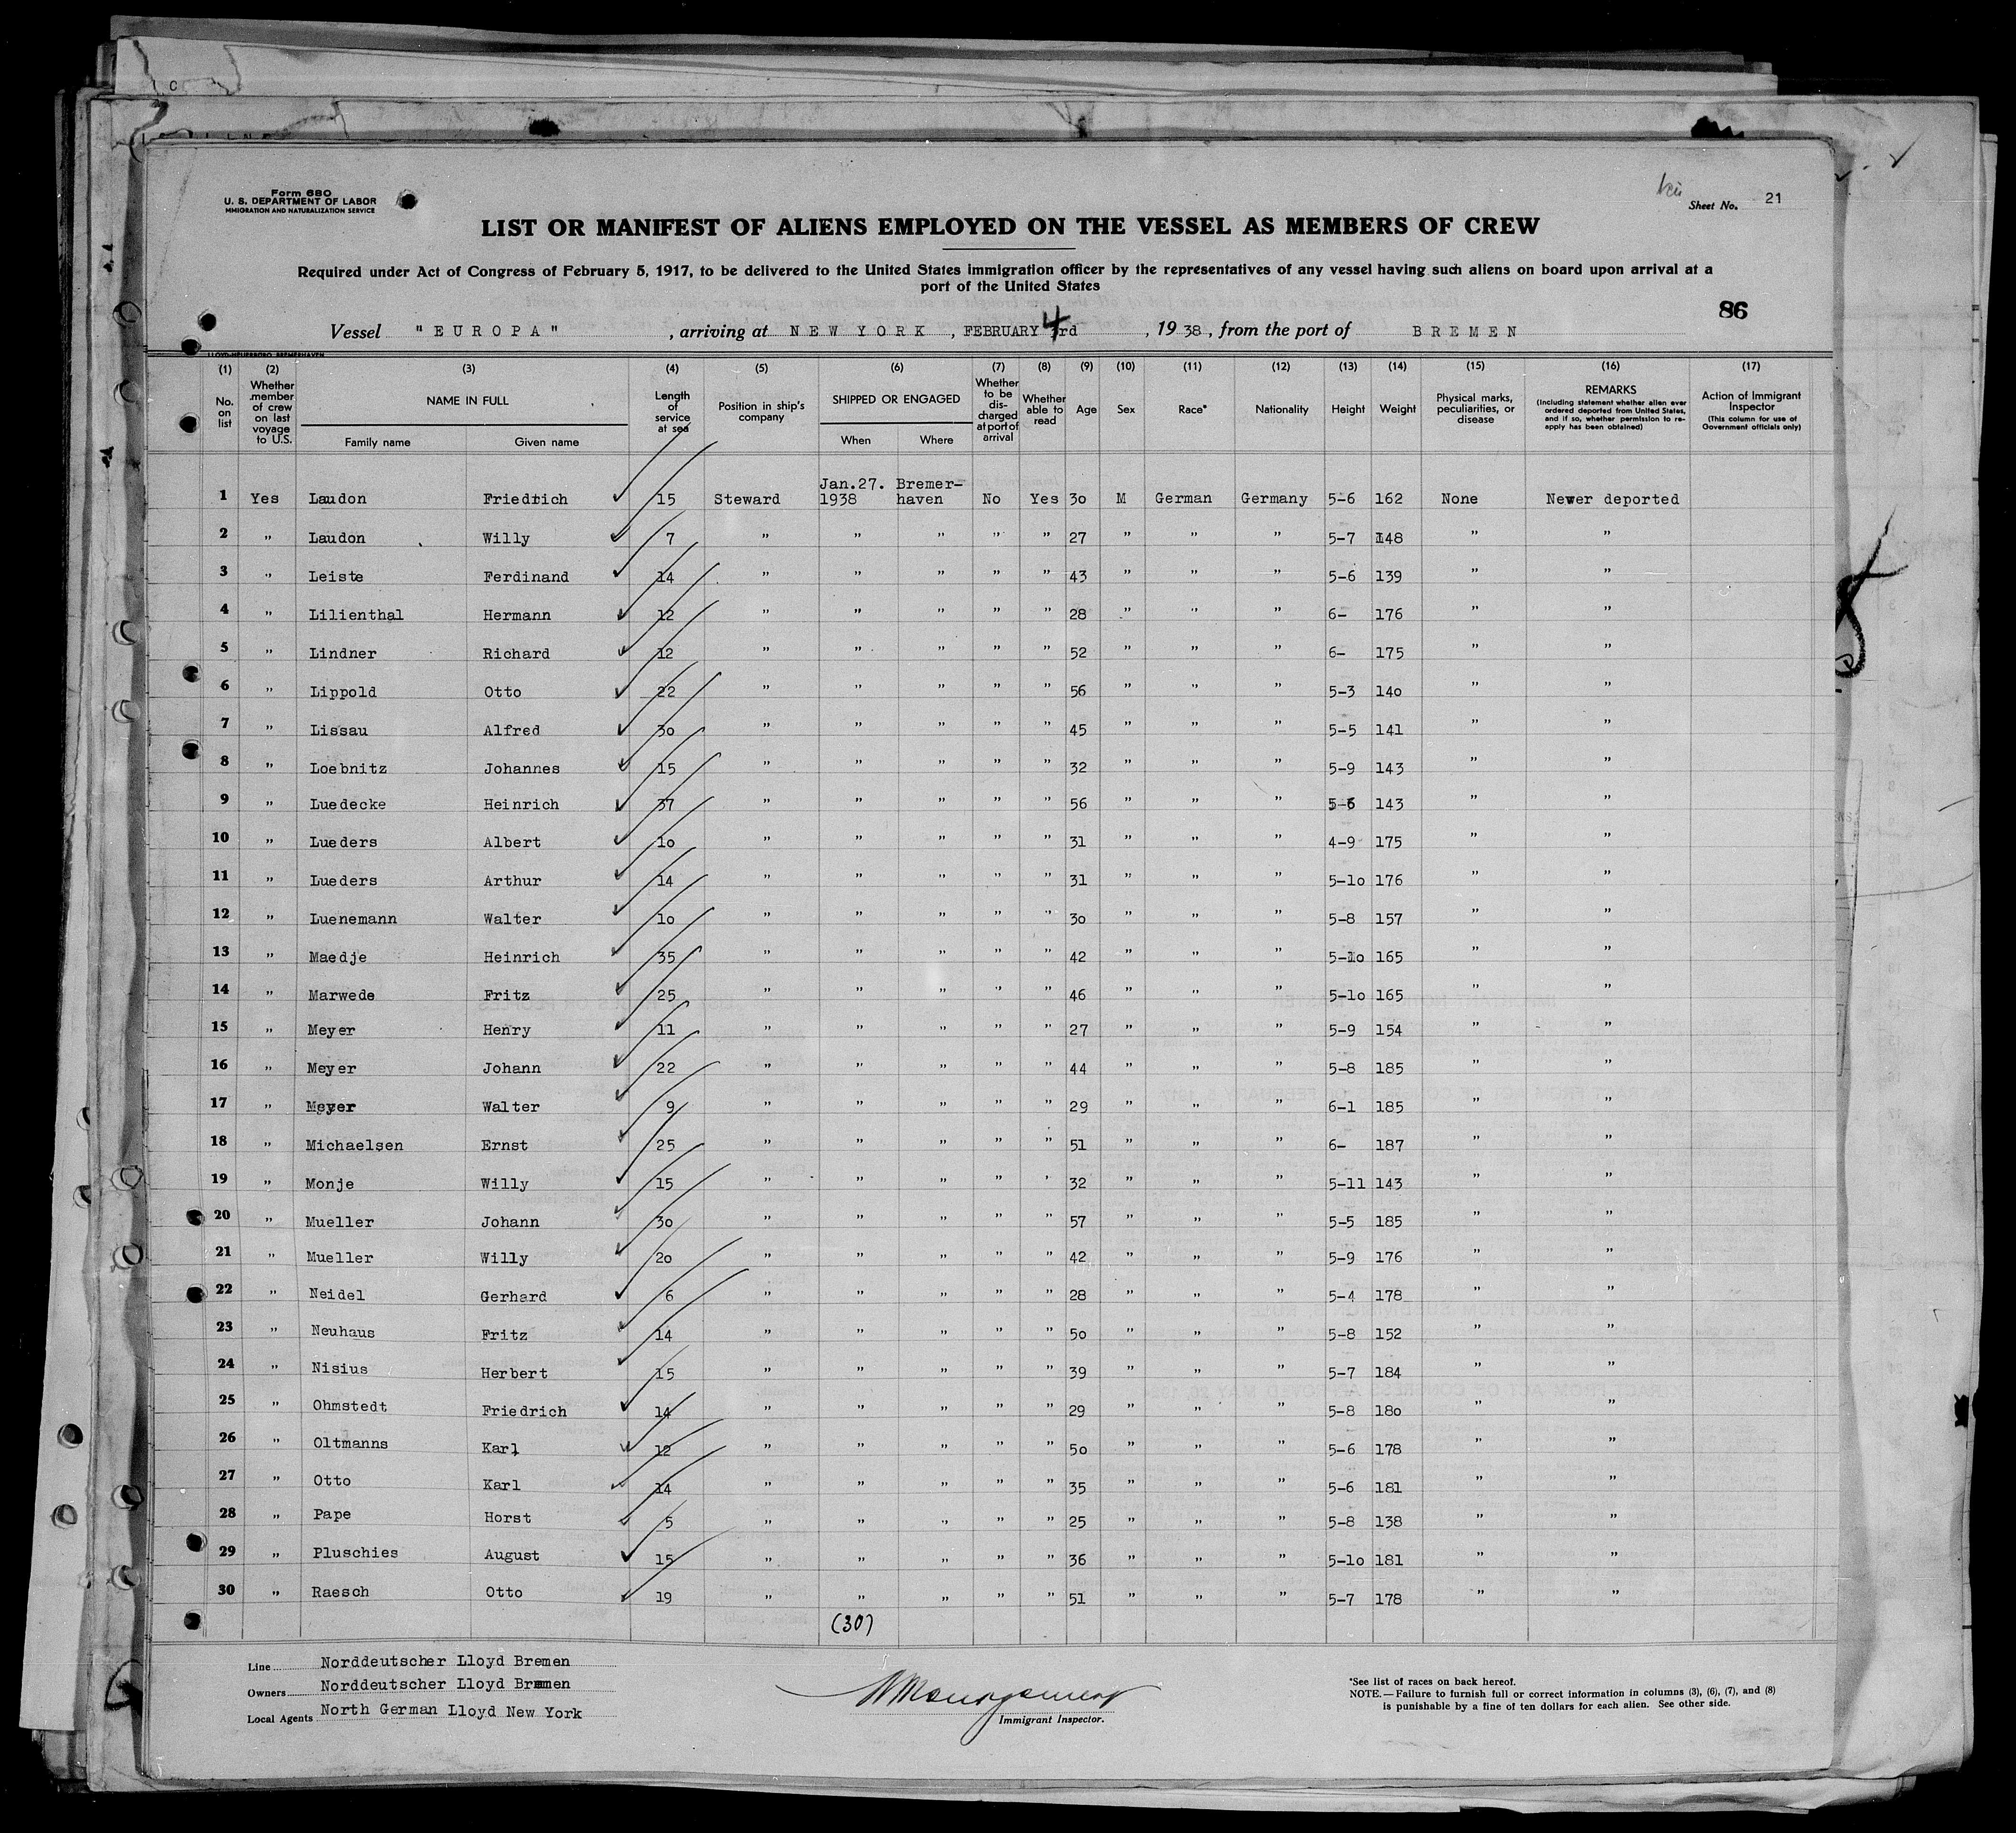 Form 680
U. S. DEPARTMENT OF LABOR
IMMIGRATION AND NATURALIZATION SERVICE
Sheet No. 21
LIST OR MANIFEST OF ALIENS EMPLOYED ON THE VESSEL AS MEMBERS OF CREW
Required under Act of Congress of February 5, 1917, to be delivered to the United States immigration officer by the representatives of any vessel having such aliens on board upon arrival at a
port of the United States
86
Vessel "EUROPA", arriving at NEW YORK, FEBRUARY 4 3rd, 1938, from the port of BREMEN
LLOYD-HEUERBÜRO BREMERHAVEN
(1) (2) (3) (4) (5) (6) (7) (8) (9) (10) (11) (12) (13) (14) (15) (16) (17)
No. on list
Whether member of crew on last voyage to U.S.
NAME IN FULL
Family name Given name
Length of service at sea
Position in ship's company
SHIPPED OR ENGAGED
When Where
Whether to be discharged at port of arrival
Whether able to read
Age
Sex
Race*
Nationality
Height
Weight
Physical marks, peculiarities, or disease
REMARKS
(Including statement whether alien ever ordered deported from United States, and if so, whether permission to reapply has been obtained)
Action of Immigrant Inspector
(This column for use of Government officials only)
1 Yes Laudon Friedrich 15 Steward Jan.27. 1938 Bremer-haven No Yes 3o M German Germany 5-6 162 None Never deported
2 " Laudon Willy 7 " " " " " 27 " " " 5-7 148 " "
3 " Leiste Ferdinand 14 " " " " " 43 " " " 5-6 139 " "
4 " Lilienthal Hermann 12 " " " " " 28 " " " 6- 176 " "
5 " Lindner Richard 12 " " " " " 52 " " " 6- 175 " "
6 " Lippold Otto 22 " " " " " 56 " " " 5-3 14o " "
7 " Lissau Alfred 3o " " " " " 45 " " " 5-5 141 " "
8 " Loebnitz Johannes 15 " " " " " 32 " " " 5-9 143 " "
9 " Luedecke Heinrich 37 " " " " " 56 " " " 5-6 143 " "
10 " Lueders Albert 1o " " " " " 31 " " " 4-9 175 " "
11 " Lueders Arthur 14 " " " " " 31 " " " 5-1o 176 " "
12 " Luenemann Walter 1o " " " " " 3o " " " 5-8 157 " "
13 " Maedje Heinrich 35 " " " " " 42 " " " 5-1o 165 " "
14 " Marwede Fritz 25 " " " " " 46 " " " 5-1o 165 " "
15 " Meyer Henry 11 " " " " " 27 " " " 5-9 154 " "
16 " Meyer Johann 22 " " " " " 44 " " " 5-8 185 " "
17 " Meyer Walter 9 " " " " " 29 " " " 6-1 185 " "
18 " Michaelsen Ernst 25 " " " " " 51 " " " 6- 187 " "
19 " Monje Willy 15 " " " " " 32 " " " 5-11 143 " "
20 " Mueller Johann 3o " " " " " 57 " " " 5-5 185 " "
21 " Mueller Willy 2o " " " " " 42 " " " 5-9 176 " "
22 " Neidel Gerhard 6 " " " " " 28 " " " 5-4 178 " "
23 " Neuhaus Fritz 14 " " " " " 5o " " " 5-8 152 " "
24 " Nisius Herbert 15 " " " " " 39 " " " 5-7 184 " "
25 " Ohmstedt Friedrich 14 " " " " " 29 " " " 5-8 18o " "
26 " Oltmanns Karl 12 " " " " " 5o " " " 5-6 178 " "
27 " Otto Karl 14 " " " " " 35 " " " 5-6 181 " "
28 " Pape Horst 5 " " " " " 25 " " " 5-8 138 " "
29 " Pluschies August 15 " " " " " 36 " " " 5-1o 181 " "
30 " Raesch Otto 19 " " " " " 51 " " " 5-7 178 " "
(30)
Line Norddeutscher Lloyd Bremen
Owners Norddeutscher Lloyd Bremen
Local Agents North German Lloyd New York
Immigrant Inspector.
*See list of races on back hereof.
NOTE.—Failure to furnish full or correct information in columns (3), (6), (7), and (8)
is punishable by a fine of ten dollars for each alien. See other side.